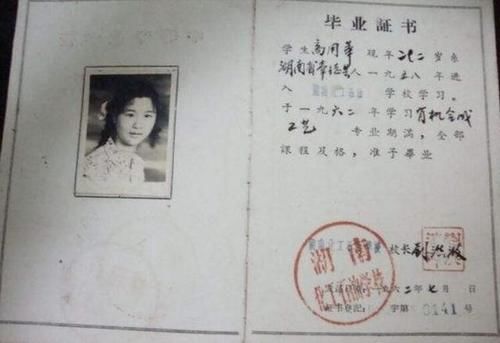 毕业证书
学生高同華现年二十二岁系
湖南省常德县人一九五八年进
入 学校学习。
于一九六二年学习有机合成
工艺 专业期满,全部
课程及格,准予畢业
校长
湖南
化工石油学校
一九六二年七月 日
证书登记: 字第0141号